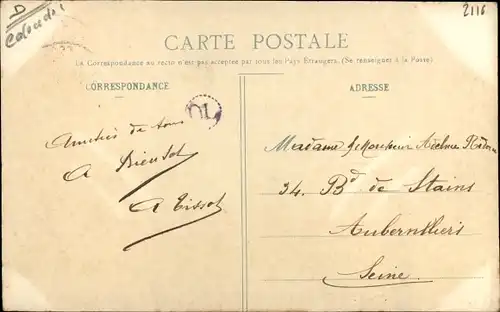 2116
CARTE POSTALE
La Correspondance au recto n'est pas acceptée par tous les Pays Étrangers. (Se renseigner à la Poste)
CORRESPONDANCE
ADRESSE
Amitiés de tous
A Bientôt
A Tissot
Madame & Monsieur
34. Bd de Stains
Aubervilliers
Seine.